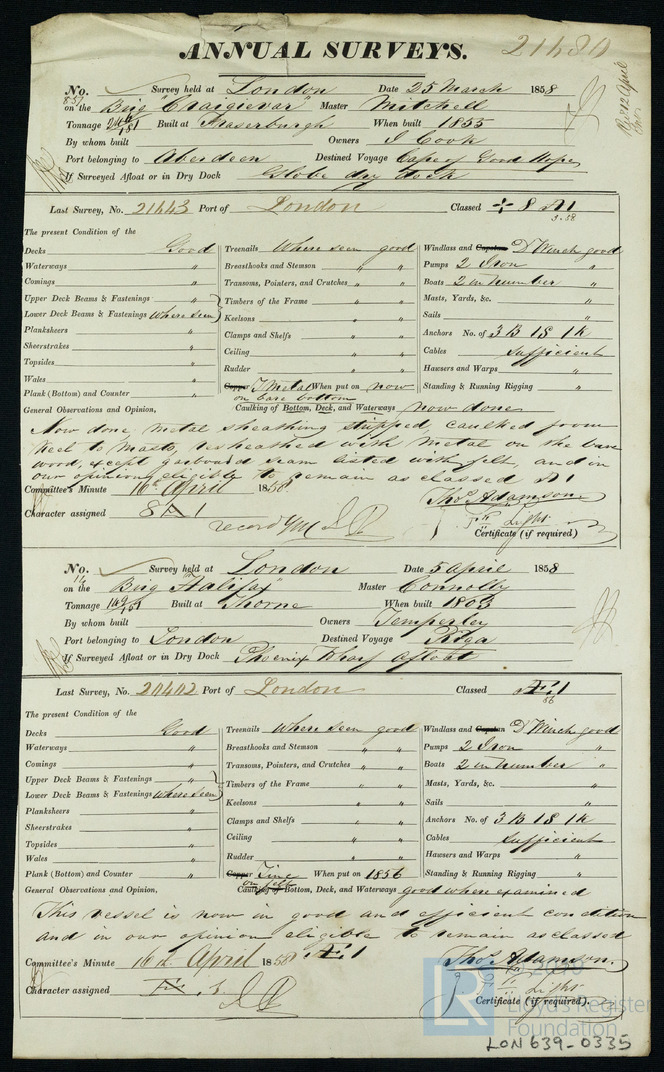 ANNUAL SURVEYS.
21480
No. 857 Survey held at London Date 25 March 1858
on the Brig "Craigievar" Master Mitchell
Tonnage Built at Fraserburgh When built 1855
By whom built Owners J Cook
Port belonging to Aberdeen Destined Voyage Cape of Good Hope
If Surveyed Afloat or in Dry Dock Globe dry dock
Last Survey, No. 21443 Port of London Classed 8 A 1
3.58
The present Condition of the
Decks Good
Waterways "
Comings "
Upper Deck Beams & Fastenings "
Lower Deck Beams & Fastenings where seen
Planksheers "
Sheerstrakes "
Topsides "
Wales "
Plank (Bottom) and Counter "
Treenails Where seen good
Breasthooks and Stemson " "
Transoms, Pointers, and Crutches " "
Timbers of the Frame " "
Keelsons " "
Clamps and Shelfs " "
Ceiling " "
Rudder " "
Copper Y Metal When put on now
on bare bottom
Windlass and Capstan D' Winch good
Pumps 2 Iron "
Boats 2 in number "
Masts, Yards, &c. "
Sails "
Anchors No. of 3 B 1 S 1 K
Cables Sufficient
Hawsers and Warps "
Standing & Running Rigging "
General Observations and Opinion, Caulking of Bottom, Deck, and Waterways now done
Now done metal sheathing stripped, caulked from
keel to Masts, resheathed with metal on the bare
wood, except garboard seam listed with felt, and in
our opinion eligible to remain as classed A 1
Committee's Minute 16th April 1858
Thos Adamson
Character assigned 8 A 1
record YM
Light
Certificate (if required)
No. 14 Survey held at London Date 5 April 1858
on the Brig "Halifax" Master Connolly
Tonnage Built at Thorne When built 1803
By whom built Owners Temperley
Port belonging to London Destined Voyage Riga
If Surveyed Afloat or in Dry Dock Phoenix Wharf afloat
Last Survey, No. 20402 Port of London Classed Æ 1
56
The present Condition of the
Decks Good
Waterways "
Comings "
Upper Deck Beams & Fastenings "
Lower Deck Beams & Fastenings where seen
Planksheers "
Sheerstrakes "
Topsides "
Wales "
Plank (Bottom) and Counter "
Treenails Where seen good
Breasthooks and Stemson " "
Transoms, Pointers, and Crutches " "
Timbers of the Frame " "
Keelsons " "
Clamps and Shelfs " "
Ceiling " "
Rudder " "
Copper Zinc When put on 1856
on felt
Windlass and Capstan D' Winch good
Pumps 2 Iron "
Boats 2 in number "
Masts, Yards, &c. "
Sails "
Anchors No. of 3 B 1 S 1 K
Cables Sufficient
Hawsers and Warps "
Standing & Running Rigging "
General Observations and Opinion, Caulking of Bottom, Deck, and Waterways good where examined
This vessel is now in good and efficient condition
and in our opinion eligible to remain as classed
Committee's Minute 16th April 1858 Æ 1
Thos Adamson
Character assigned Æ 1
Light
Certificate (if required).
LR
Lloyd's Register
Foundation
LON639-0335